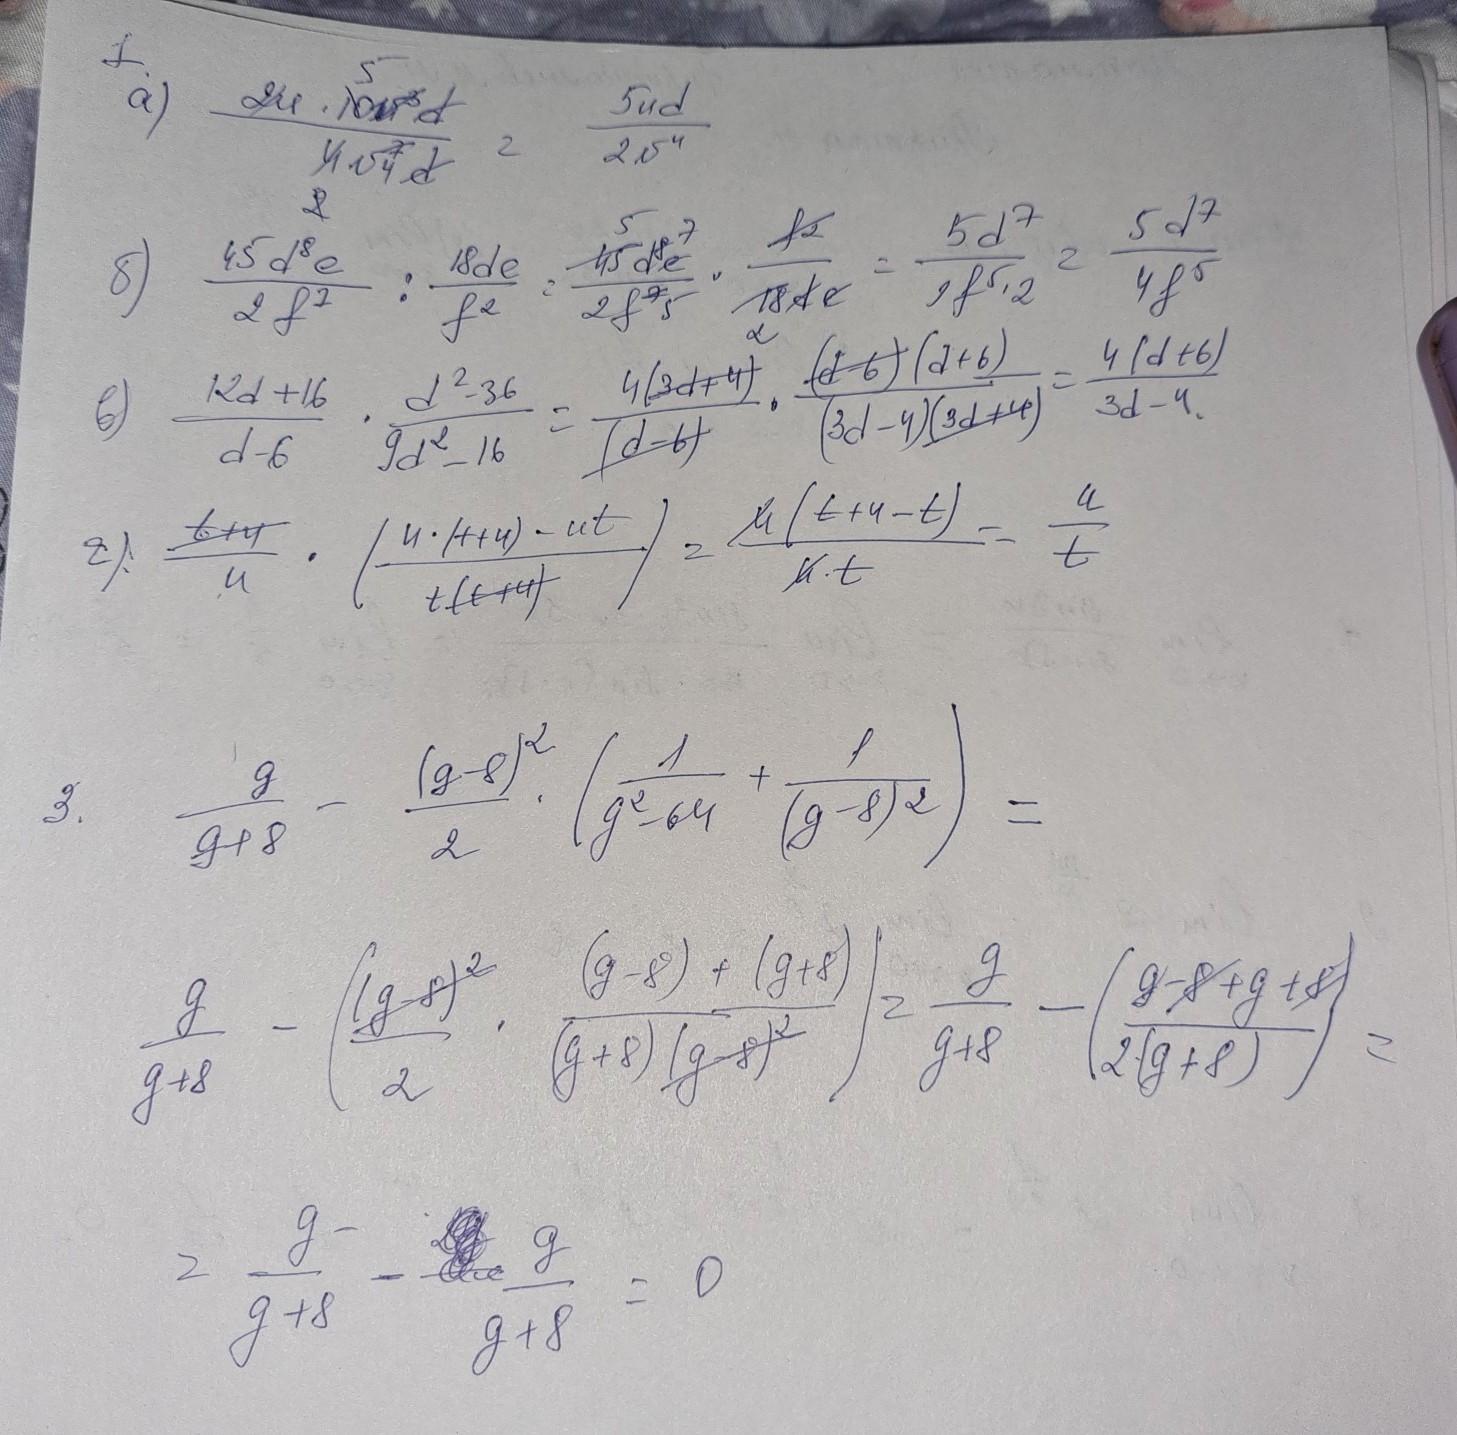 1.
а) (2u · 10v³d)/(4v⁷d) = 5ud/2v⁴
б) 45d⁸e/2f⁷ : 18de/f² = 45d⁸e/2f⁷ · f²/18de = 5d⁷/2f⁵·2 = 5d⁷/4f⁵
в) (12d+16)/(d-6) · (d²-36)/(9d²-16) = 4(3d+4)/(d-6) · (d-6)(d+6)/(3d-4)(3d+4) = 4(d+6)/(3d-4).
г). (t+u)/u · (u·(t+u) - ut)/(t(t+u)) = u(t+u-t)/(u·t) = u/t
3. g/(g+8) - (g-8)²/2 · (1/(g²-64) + 1/(g-8)²) =
g/(g+8) - ((g-8)²/2 · ((g-8)+(g+8))/((g+8)(g-8)²)) = g/(g+8) - ((g-8+g+8)/(2(g+8))) =
= g/(g+8) - g/(g+8) = 0